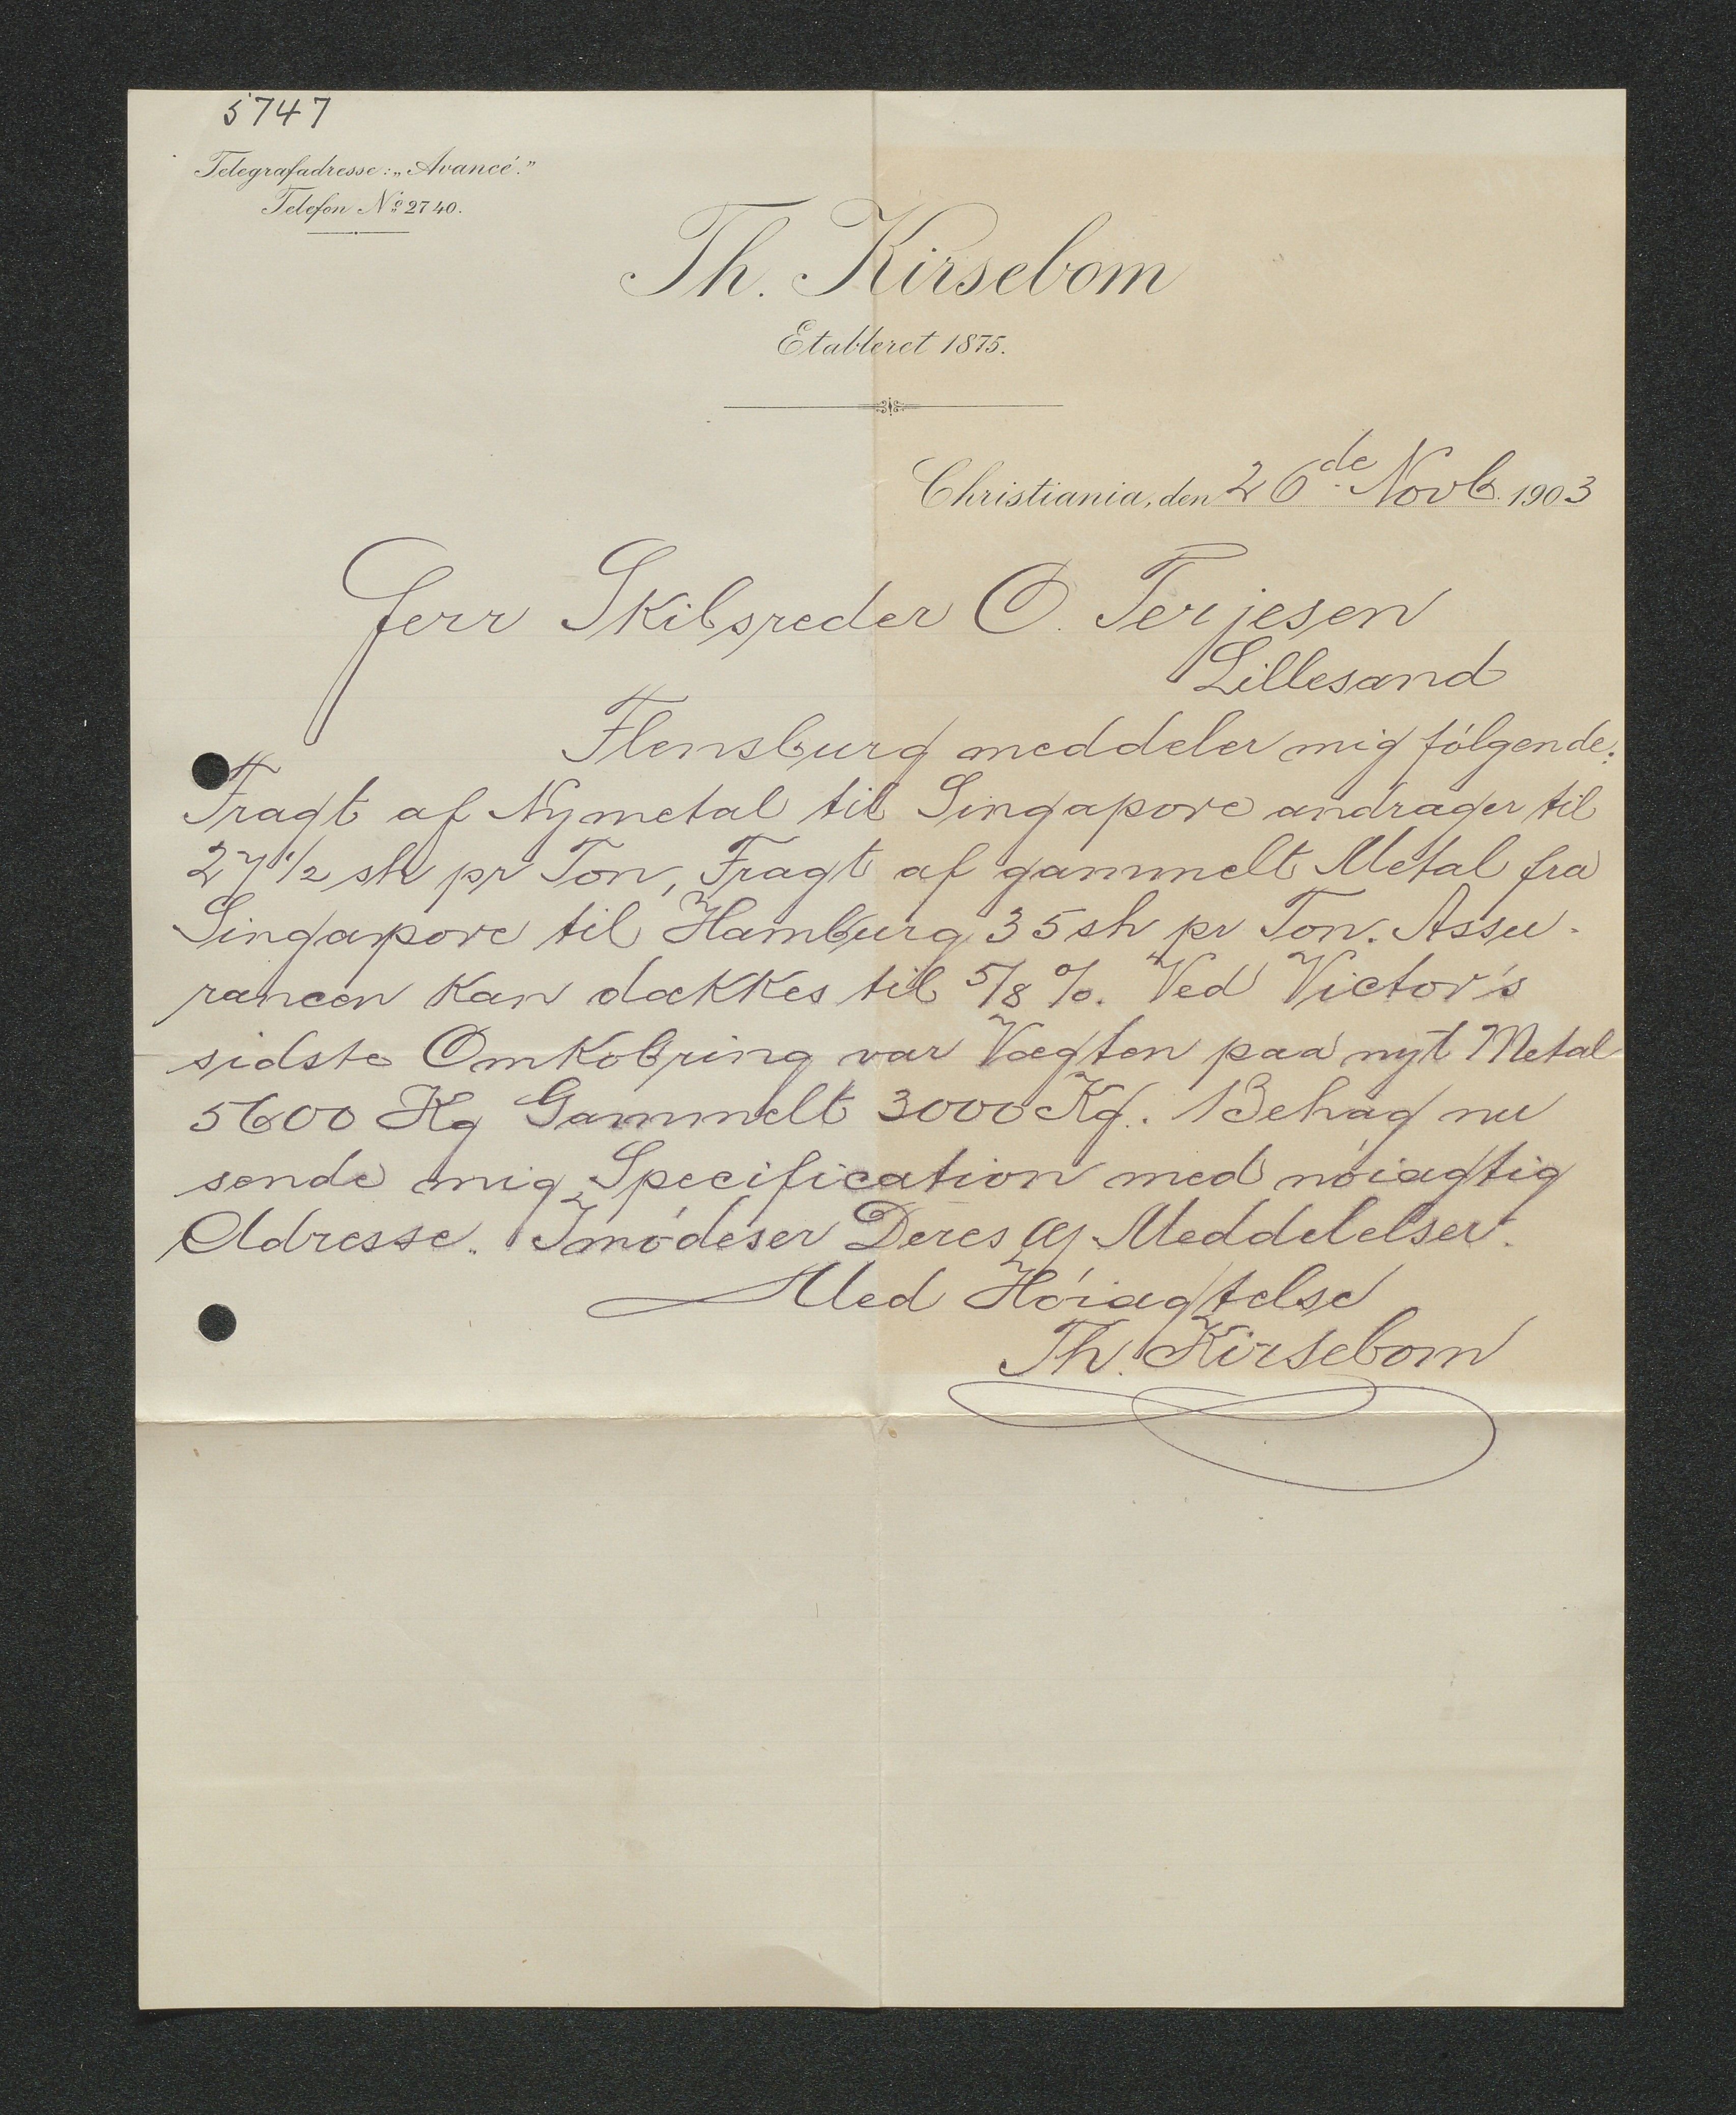 5747
Telegrafadresse: „Avancé."
Telefon No 2740.
Th. Kirsebom
Etableret 1875.
Christiania, den 26de Novb. 1903
Herr Skibsreder O. Terjesen
Lillesand
Flensburg meddeler mig følgende:
Fragt af Nymetal til Singapore andrager til
27 1/2 sh pr Ton, Fragt af gammelt Metal fra
Singapore til Hamburg 35 sh pr Ton. Assu-
rancen kan dækkes til 5/8 %. Ved Victor's
sidste Omkobring var Vægten paa nyt Metal
5600 Kg Gammelt 3000 Kg. Behag nu
sende mig Specification med nøiagtig
Adresse. Imødeser Deres Meddelelser.
Med Høiagtelse
Th. Kirsebom